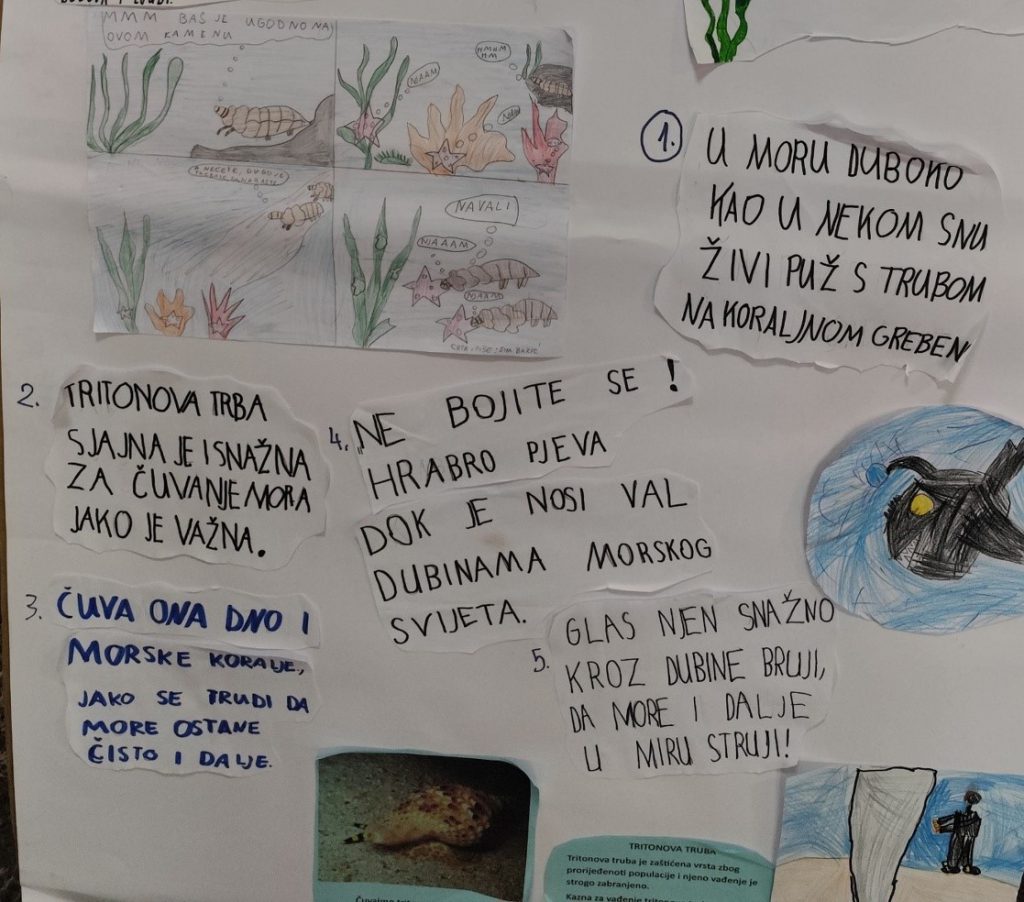 MMM BAŠ JE UGODNO NA
OVOM KAMENU
NJAAM
NAVALI
NJAAAM
NJAAM
1.
U MORU DUBOKO
KAO U NEKOM SNU
ŽIVI PUŽ S TRUBOM
NA KORALJNOM GREBEN
2. TRITONOVA TRBA
SJAJNA JE I SNAŽNA
ZA ČUVANJE MORA
JAKO JE VAŽNA.
3. ČUVA ONA DNO I
MORSKE KORALJE,
JAKO SE TRUDI DA
MORE OSTANE
ČISTO I DALJE.
4. „NE BOJITE SE!
HRABRO PJEVA
DOK JE NOSI VAL
DUBINAMA MORSKOG
SVIJETA.
5. GLAS NJEN SNAŽNO
KROZ DUBINE BRUJI,
DA MORE I DALJE
U MIRU STRUJI!
Čuvajmo
TRITONOVA TRUBA
Tritonova truba je zaštićena vrsta zbog
prorijeđenosti populacije i njeno vađenje je
strogo zabranjeno.
Kazna za vađenje